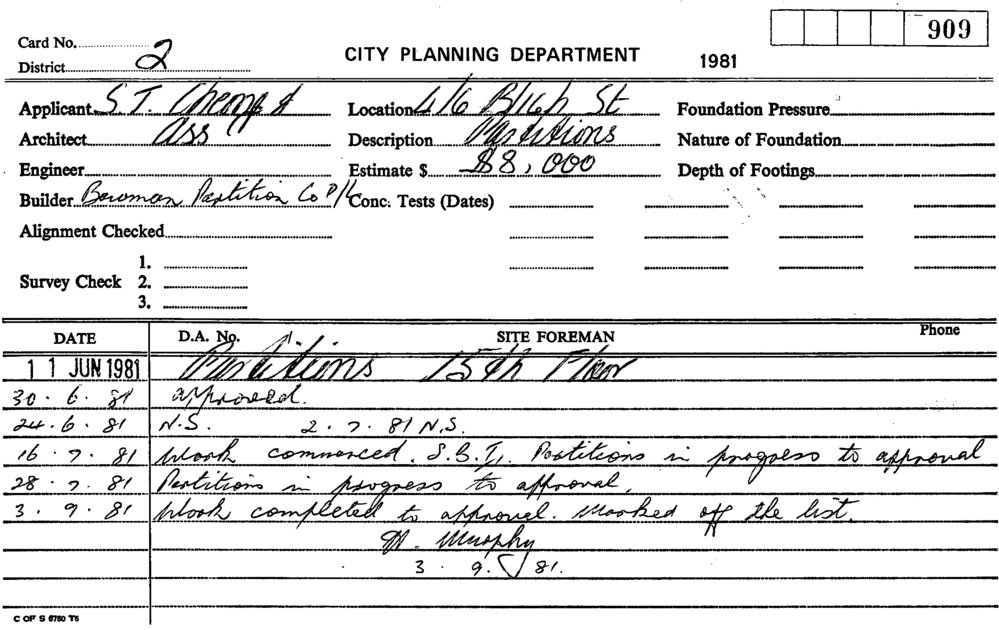 909
Card No.
District 2
CITY PLANNING DEPARTMENT 1981
Applicant S.T. &
Location 4/6 Bligh St
Foundation Pressure
Architect Ass
Description Partitions
Nature of Foundation
Engineer
Estimate $ $8,000
Depth of Footings
Builder Bowman Partition Co P/L
Conc. Tests (Dates)
Alignment Checked
Survey Check
1.
2.
3.
DATE D.A. No. SITE FOREMAN Phone
11 JUN 1981 Partitions 15th Floor
30.6.81 approved.
24.6.81 N.S. 2.7.81 N.S.
16.7.81 Work commenced. Partitions in progress to approval
28.7.81 Partitions in progress to approval.
3.9.81 Work completed to approval. Marked off the list.
Murphy
3.9.81.
C OF S 6760 T5